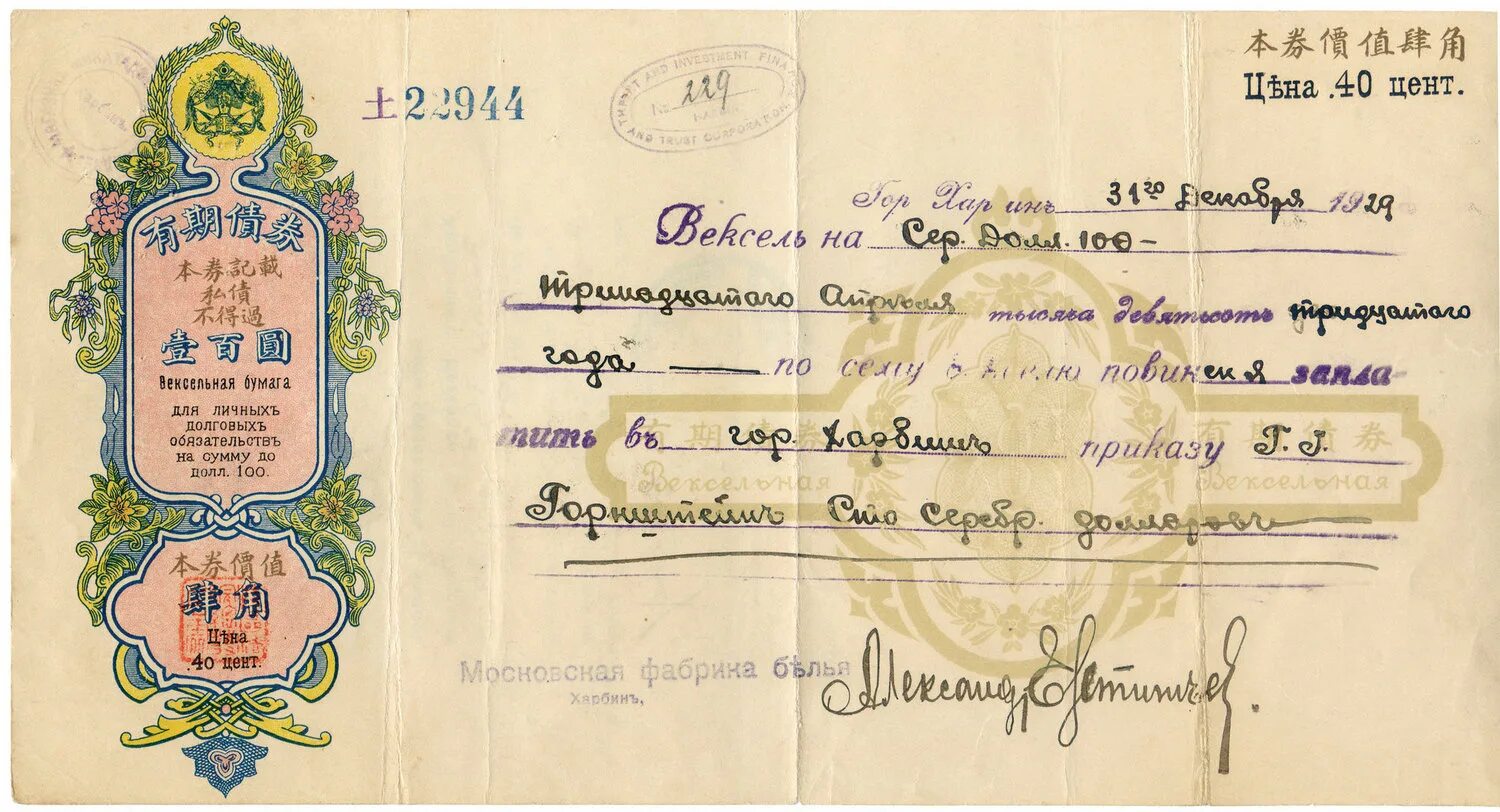 本券價值肆角
Цѣна .40 цент.
土22944
THRIFT AND INVESTMENT FINANCE
No. 229
HARBIN
AND TRUST CORPORATION
有期債券
本券記載
私債
不得過
壹百圓
Вексельная бумага
для личныхъ
долговыхъ
обязательствъ
на сумму до
долл. 100.
本券價值
肆角
Цѣна
.40 цент.
Гор Хар инъ 31го Декабря 1929
Вексель на Сер. Долл. 100-
Тринадцатаго Апрѣля тысяча девятьсотъ тридцатаго
года — по сему в кселю повинен я запла-
тить въ гор. Харбинъ приказу Г. Г.
Горнштейнъ Сто серебр. долларовъ
有期債券 有期債券
Вексельная Вексельная
Московская фабрика бѣлья
Харбинъ,
Александр